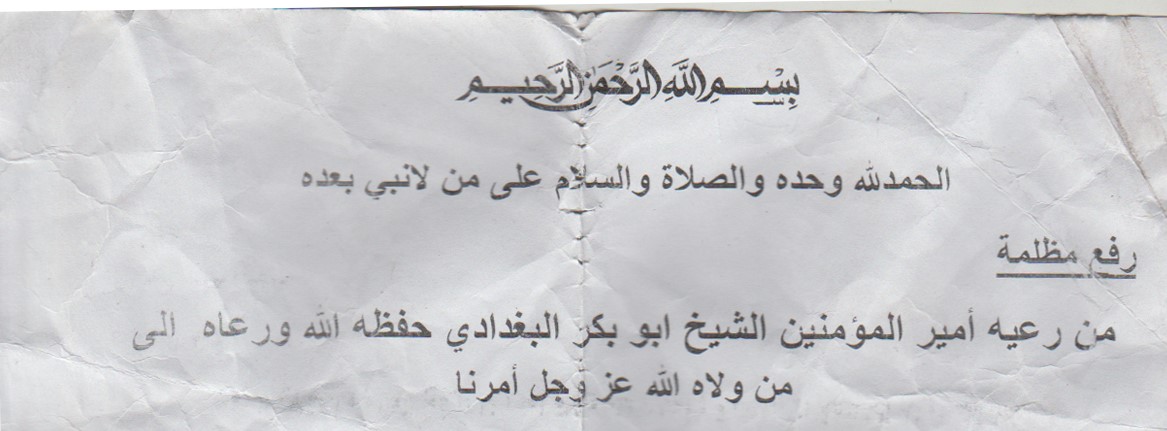 بِسْمِ اللَّهِ الرَّحْمَنِ الرَّحِيمِ
الحمدلله وحده والصلاة والسلام على من لانبي بعده
رفع مظلمة
من رعيه أمير المؤمنين الشيخ ابو بكر البغدادي حفظه الله ورعاه الى
من ولاه الله عز وجل أمرنا